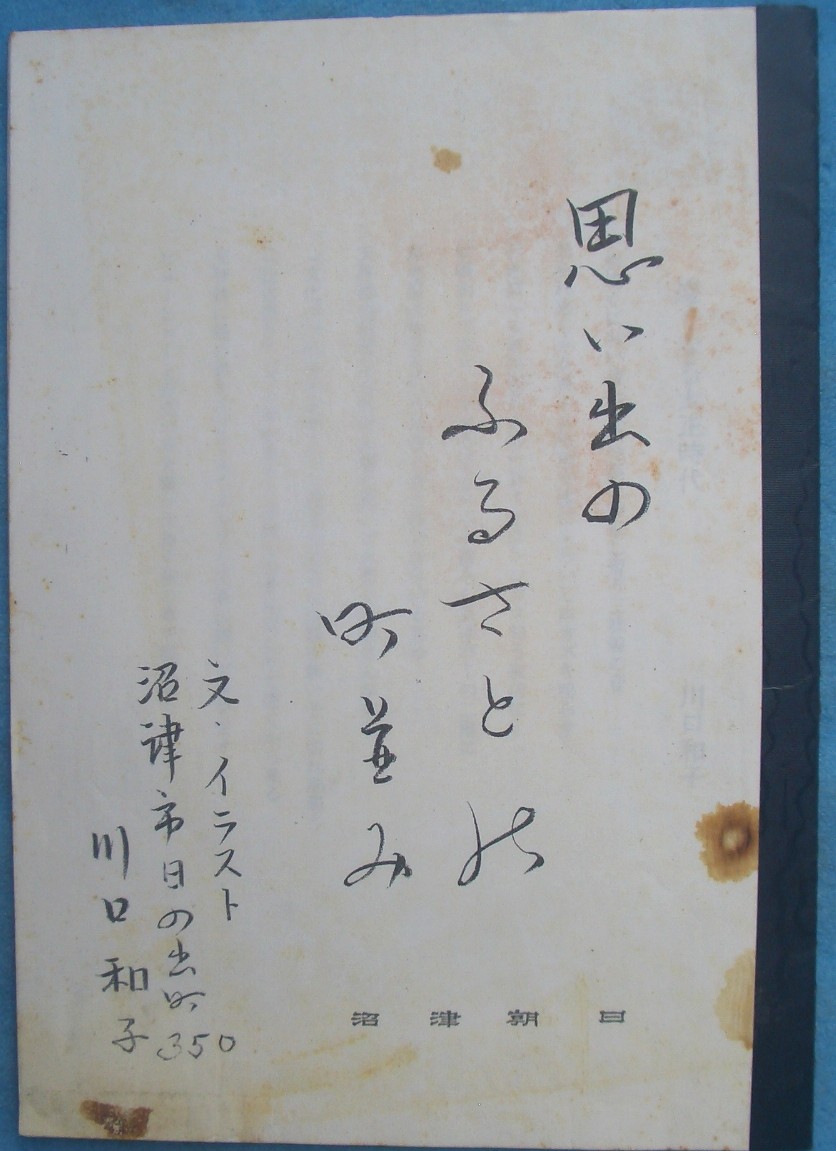 思い出の
ふるさとの
町並み
文・イラスト
沼津市日の出町350
川口和子
沼津朝日